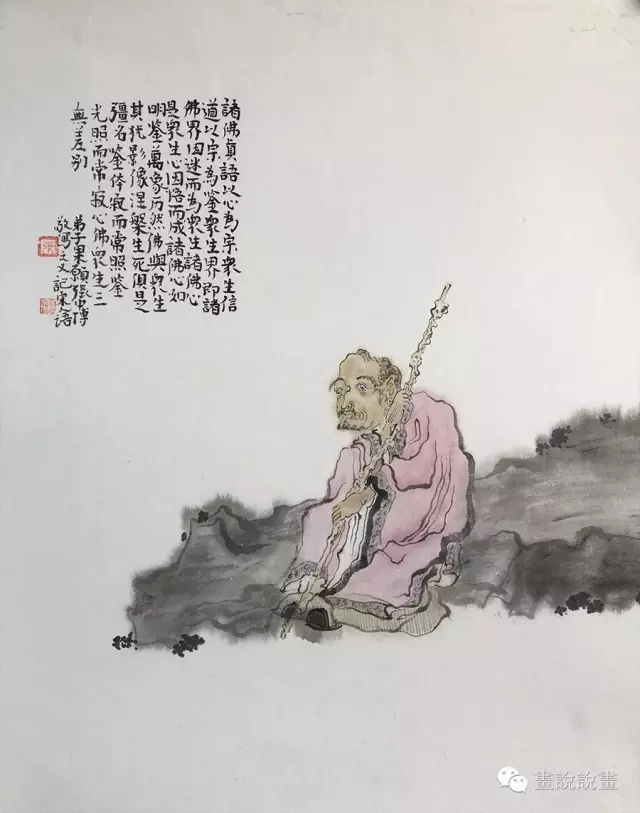 諸佛真語以心為宗衆生信
道以宗為鉴衆生界即諸
佛界因迷而為衆生諸佛心
是衆生心因悟而成諸佛心如
明鉴萬象历然佛與衆生
其犹影像涅槃生死俱是
彊名鉴体寂而常照鉴
光照而常寂心佛衆生三
無差别
弟子果願張中博
敬寫之又記宋語
畫説説畫